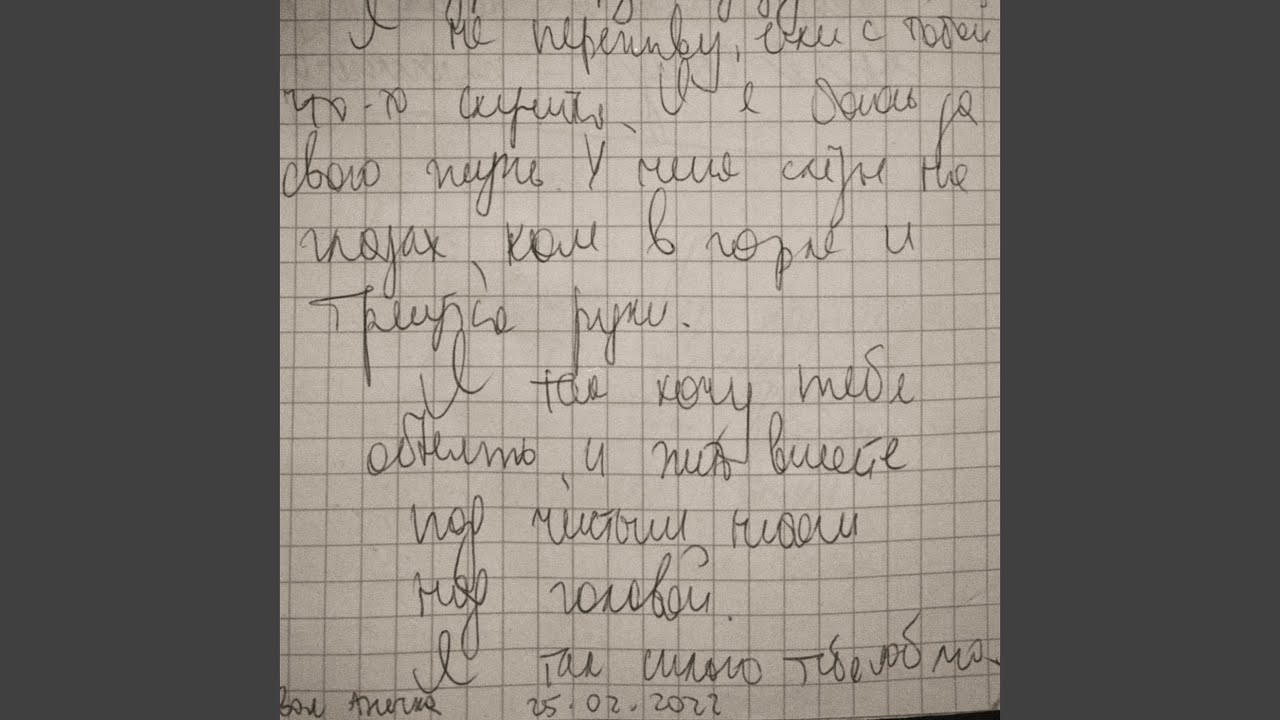 Я не переживу, если с тобой
что-то случится. И я боюсь за
свою жизнь. У меня слёзы на
глазах, ком в горле и
трясутся руки.
Я так хочу тебя
обнять, и жить вместе
под чистым небом
над головой.
Я так сильно тебя люблю.
Анечка 25.02.2022